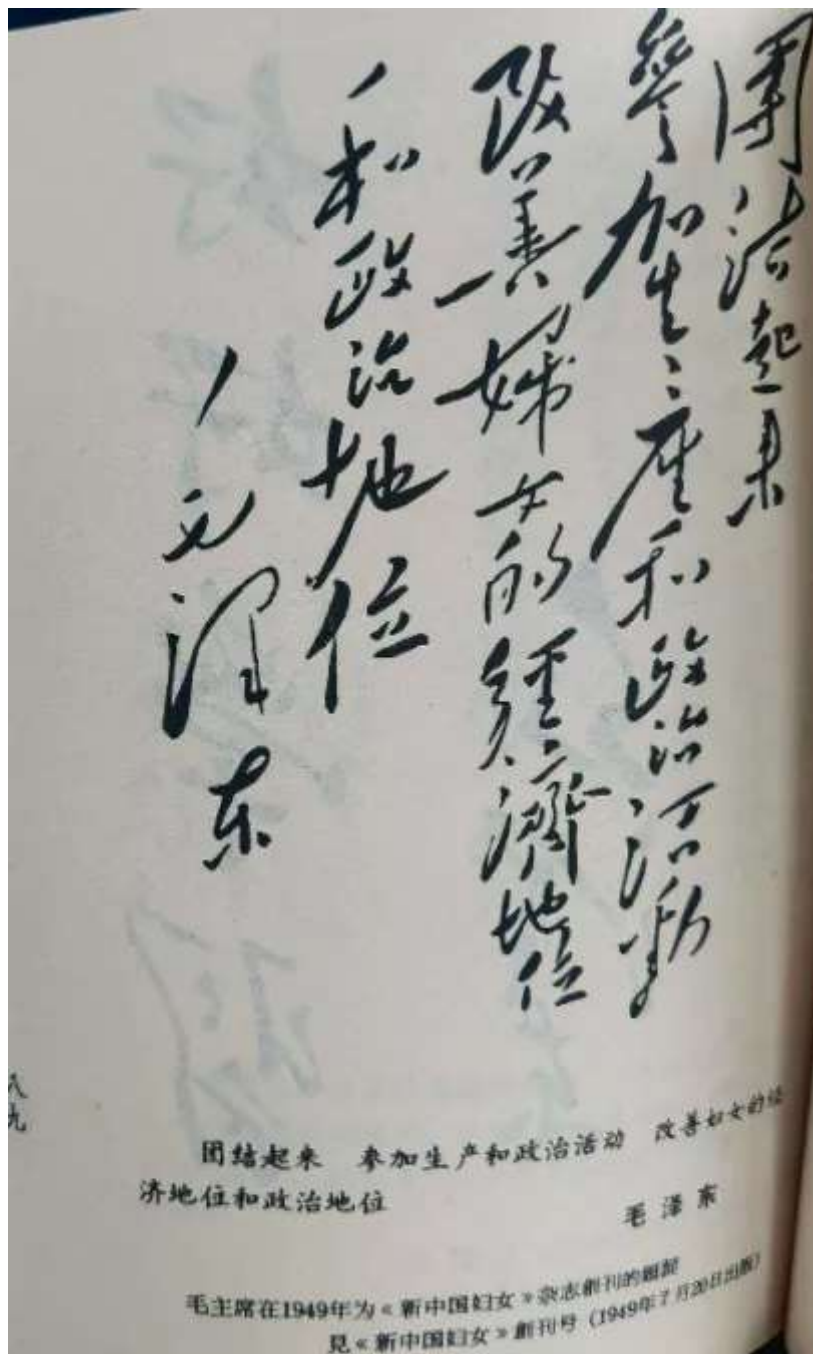 團結起来
参加生產和政治活動
改善婦女的經濟地位
和政治地位
毛泽东
八九
团结起来 参加生产和政治活动 改善妇女的经
济地位和政治地位
毛泽东
毛主席在1949年为《新中国妇女》杂志創刊的題詞
見《新中国妇女》創刊号（1949年7月20日出版）